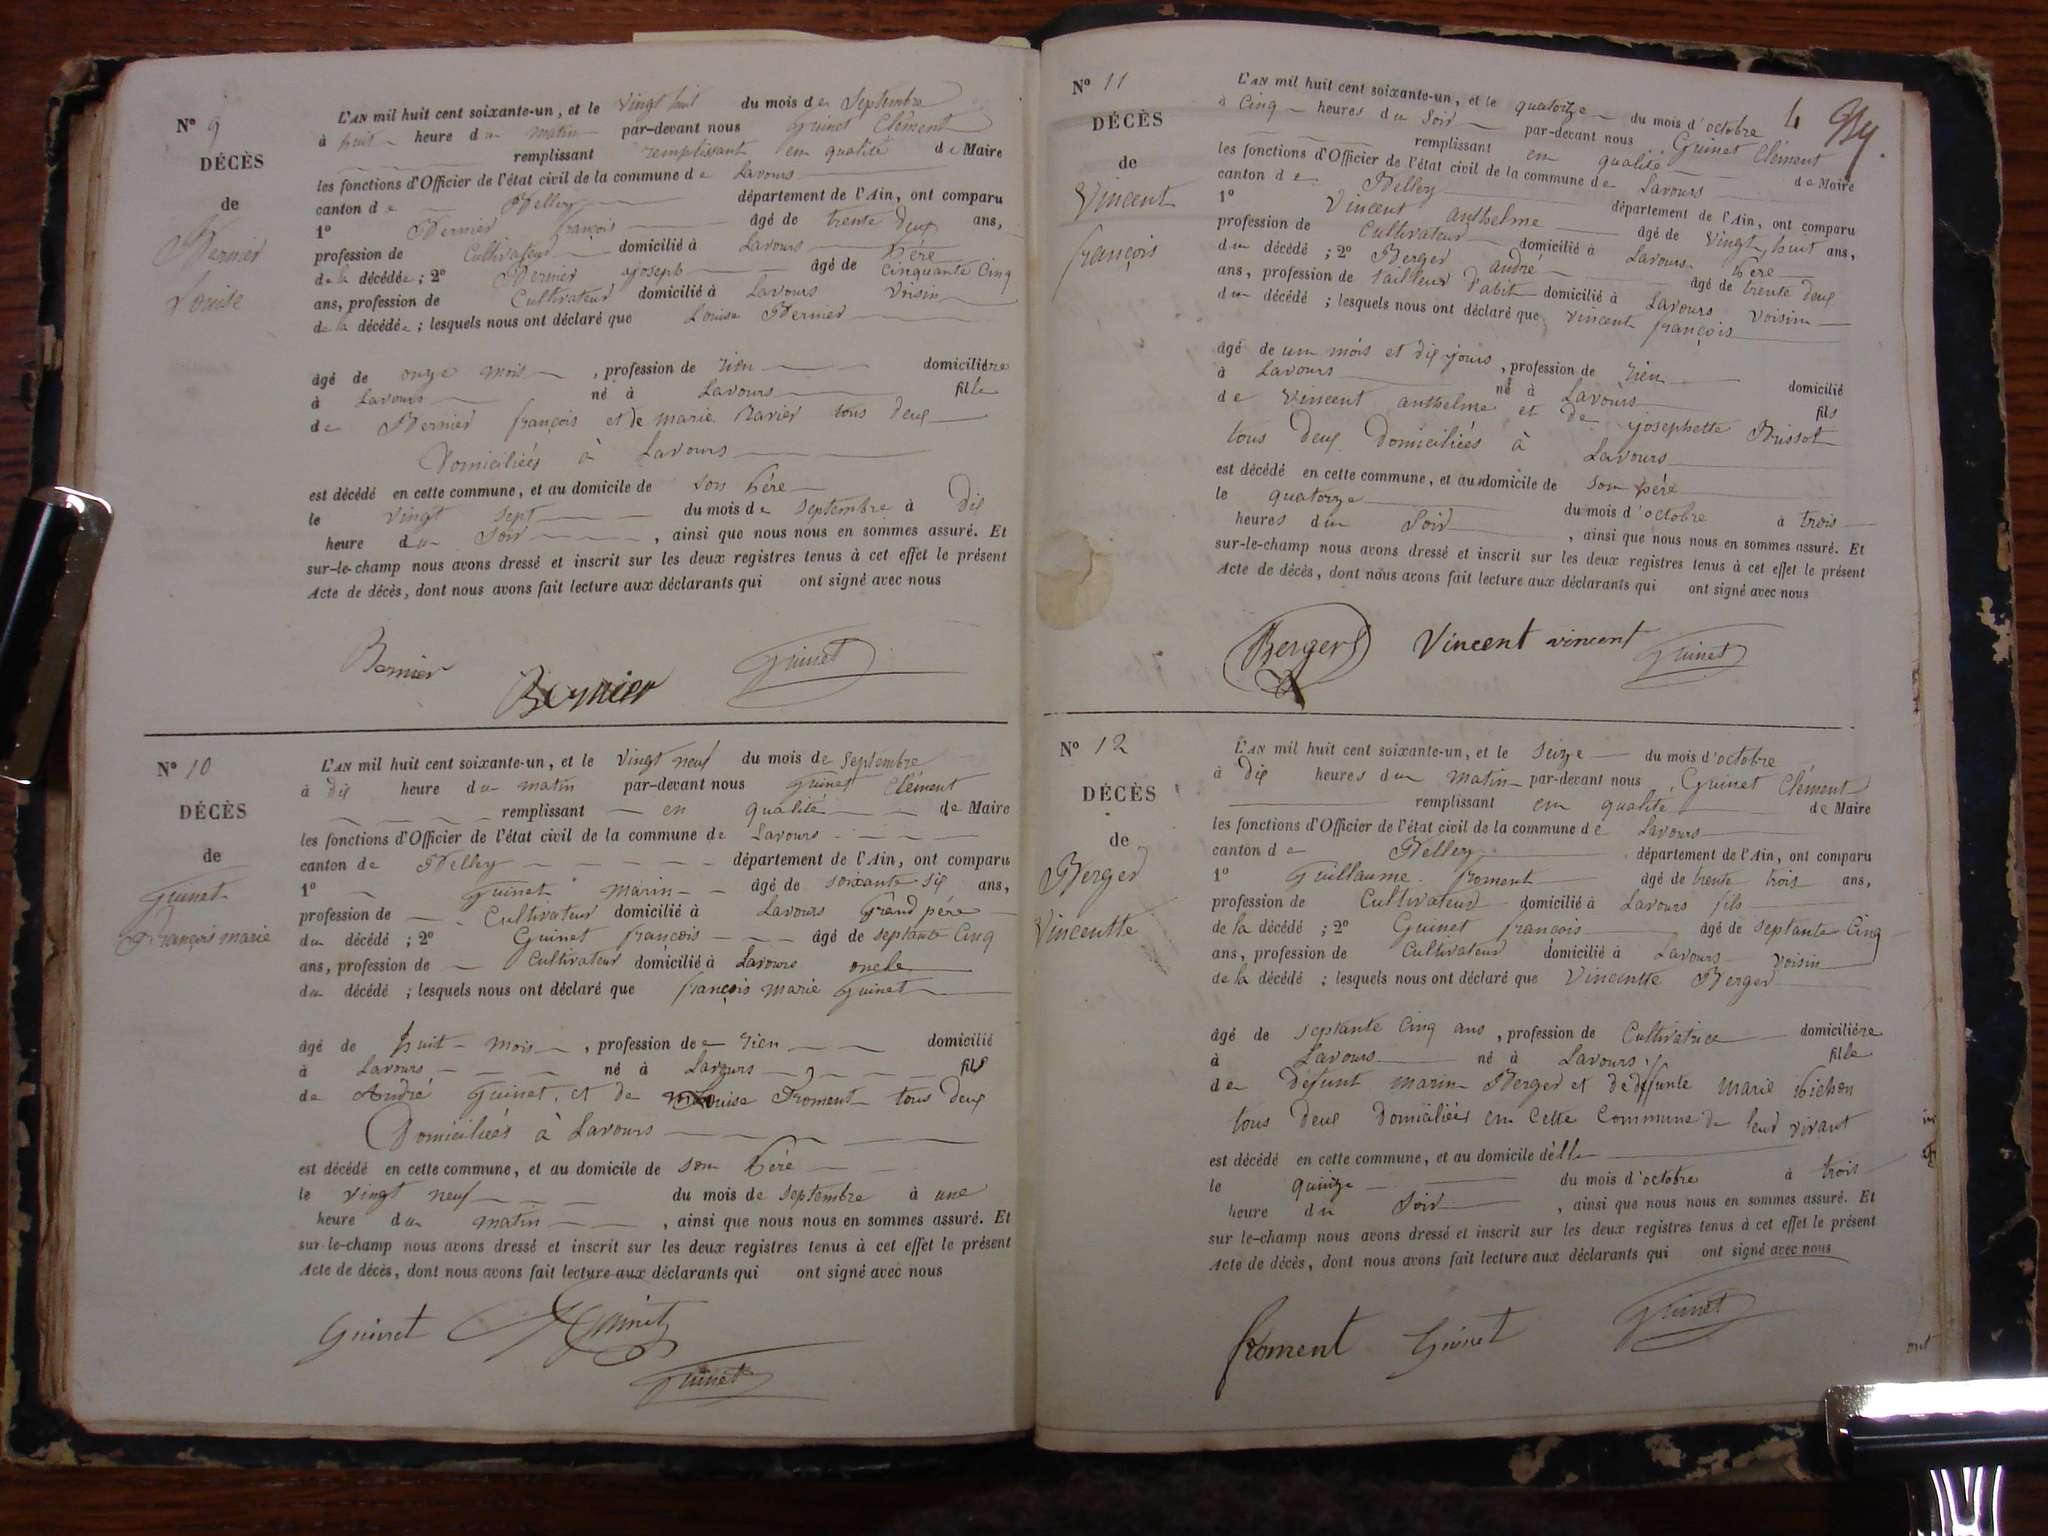 N° 9
DÉCÈS
de
Bernier
Louise
L'AN mil huit cent soixante-un, et le vingt huit du mois de Septembre
à huit heure du matin par-devant nous Guinet Clément
remplissant remplissant en qualité de Maire
les fonctions d'Officier de l'état civil de la commune de Lavours
canton de Belley département de l'Ain, ont comparu
1° Bernier françois âgé de trente deux ans,
profession de Cultivateur domicilié à Lavours Père
de la décédée ; 2° Bernier joseph âgé de cinquante cinq
ans, profession de Cultivateur domicilié à Lavours Voisin
de la décédée ; lesquels nous ont déclaré que Louise Bernier
âgé de onze mois, profession de rien domiciliére
à Lavours né à Lavours fille
de Bernier françois et de marie Ravier tous deux
Domiciliées à Lavours
est décédé en cette commune, et au domicile de son Père
le vingt sept du mois de septembre à dix
heure du Soir, ainsi que nous nous en sommes assuré. Et
sur-le-champ nous avons dressé et inscrit sur les deux registres tenus à cet effet le présent
Acte de décès, dont nous avons fait lecture aux déclarants qui ont signé avec nous
Bernier Bernier Guinet
N° 10
DÉCÈS
de
Guinet
François marie
L'AN mil huit cent soixante-un, et le vingt neuf du mois de septembre
à dix heure du matin par-devant nous Guinet Clément
remplissant en qualité de Maire
les fonctions d'Officier de l'état civil de la commune de Lavours
canton de Belley département de l'Ain, ont comparu
1° Guinet marin âgé de soixante six ans,
profession de Cultivateur domicilié à Lavours Grand père
du décédé ; 2° Guinet françois âgé de septante Cinq
ans, profession de Cultivateur domicilié à Lavours oncle
du décédé ; lesquels nous ont déclaré que françois marie Guinet
âgé de huit mois, profession de rien domicilié
à Lavours né à Lavours fils
de André Guinet et de Louise Froment tous deux
Domiciliées à Lavours
est décédé en cette commune, et au domicile de son Père
le vingt neuf du mois de septembre à une
heure du matin, ainsi que nous nous en sommes assuré. Et
sur-le-champ nous avons dressé et inscrit sur les deux registres tenus à cet effet le présent
Acte de décès, dont nous avons fait lecture aux déclarants qui ont signé avec nous
Guinet Guinet
Guinet
4
N° 11
DÉCÈS
de
Vincent
françois
L'AN mil huit cent soixante-un, et le quatorze du mois d'octobre
à Cinq heures du Soir par-devant nous Guinet Clément
remplissant en qualité de Maire
les fonctions d'Officier de l'état civil de la commune de Lavours
canton de Belley département de l'Ain, ont comparu
1° Vincent anthelme âgé de Vingt huit ans,
profession de Cultivateur domicilié à Lavours Père
du décédé ; 2° Berger andré âgé de trente deux
ans, profession de tailleur d'abit domicilié à Lavours Voisin
du décédé ; lesquels nous ont déclaré que vincent françois
âgé de un mois et dix jours, profession de rien domicilié
à Lavours né à Lavours fils
de Vincent anthelme et de josephette Brissot
tous deux Domiciliées à Lavours
est décédé en cette commune, et au domicile de son père
le quatorze du mois d'octobre à trois
heures du Soir, ainsi que nous nous en sommes assuré. Et
sur-le-champ nous avons dressé et inscrit sur les deux registres tenus à cet effet le présent
Acte de décès, dont nous avons fait lecture aux déclarants qui ont signé avec nous
Berger Vincent vincent Guinet
N° 12
DÉCÈS
de
Berger
Vincentte
L'AN mil huit cent soixante-un, et le seize du mois d'octobre
à dix heures du matin par-devant nous Guinet Clément
remplissant en qualité de Maire
les fonctions d'Officier de l'état civil de la commune de Lavours
canton de Belley département de l'Ain, ont comparu
1° Guillaume froment âgé de trente trois ans,
profession de Cultivateur domicilié à Lavours fils
de la décédé ; 2° Guinet françois âgé de septante Cinq
ans, profession de Cultivateur domicilié à Lavours voisin
de la décédé ; lesquels nous ont déclaré que Vincentte Berger
âgé de septante Cinq ans, profession de Cultivatrice domiciliére
à Lavours né à Lavours fille
de défunt marin Berger et de défunte marie Pichon
tous deux domiciliées en cette commune de leur vivant
est décédé en cette commune, et au domicile d'elle
le quinze du mois d'octobre à trois
heure du Soir, ainsi que nous nous en sommes assuré. Et
sur le-champ nous avons dressé et inscrit sur les deux registres tenus à cet effet le présent
Acte de décès, dont nous avons fait lecture aux déclarants qui ont signé avec nous
froment Guinet Guinet